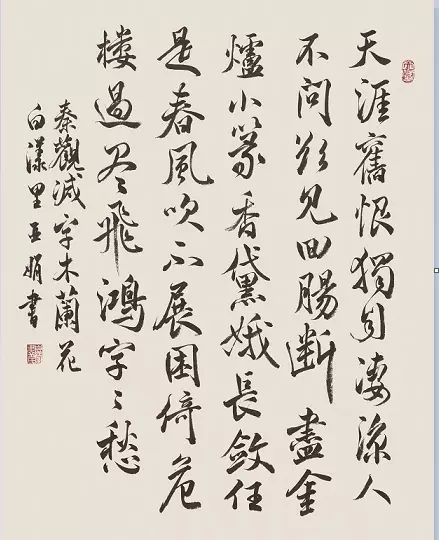 天涯舊恨獨自凄涼人
不問欲見回腸斷盡金
爐小篆香黛娥長斂任
是春風吹不展困倚危
楼過尽飛鴻字〻愁
秦觀減字木蘭花
白漾里王娟書